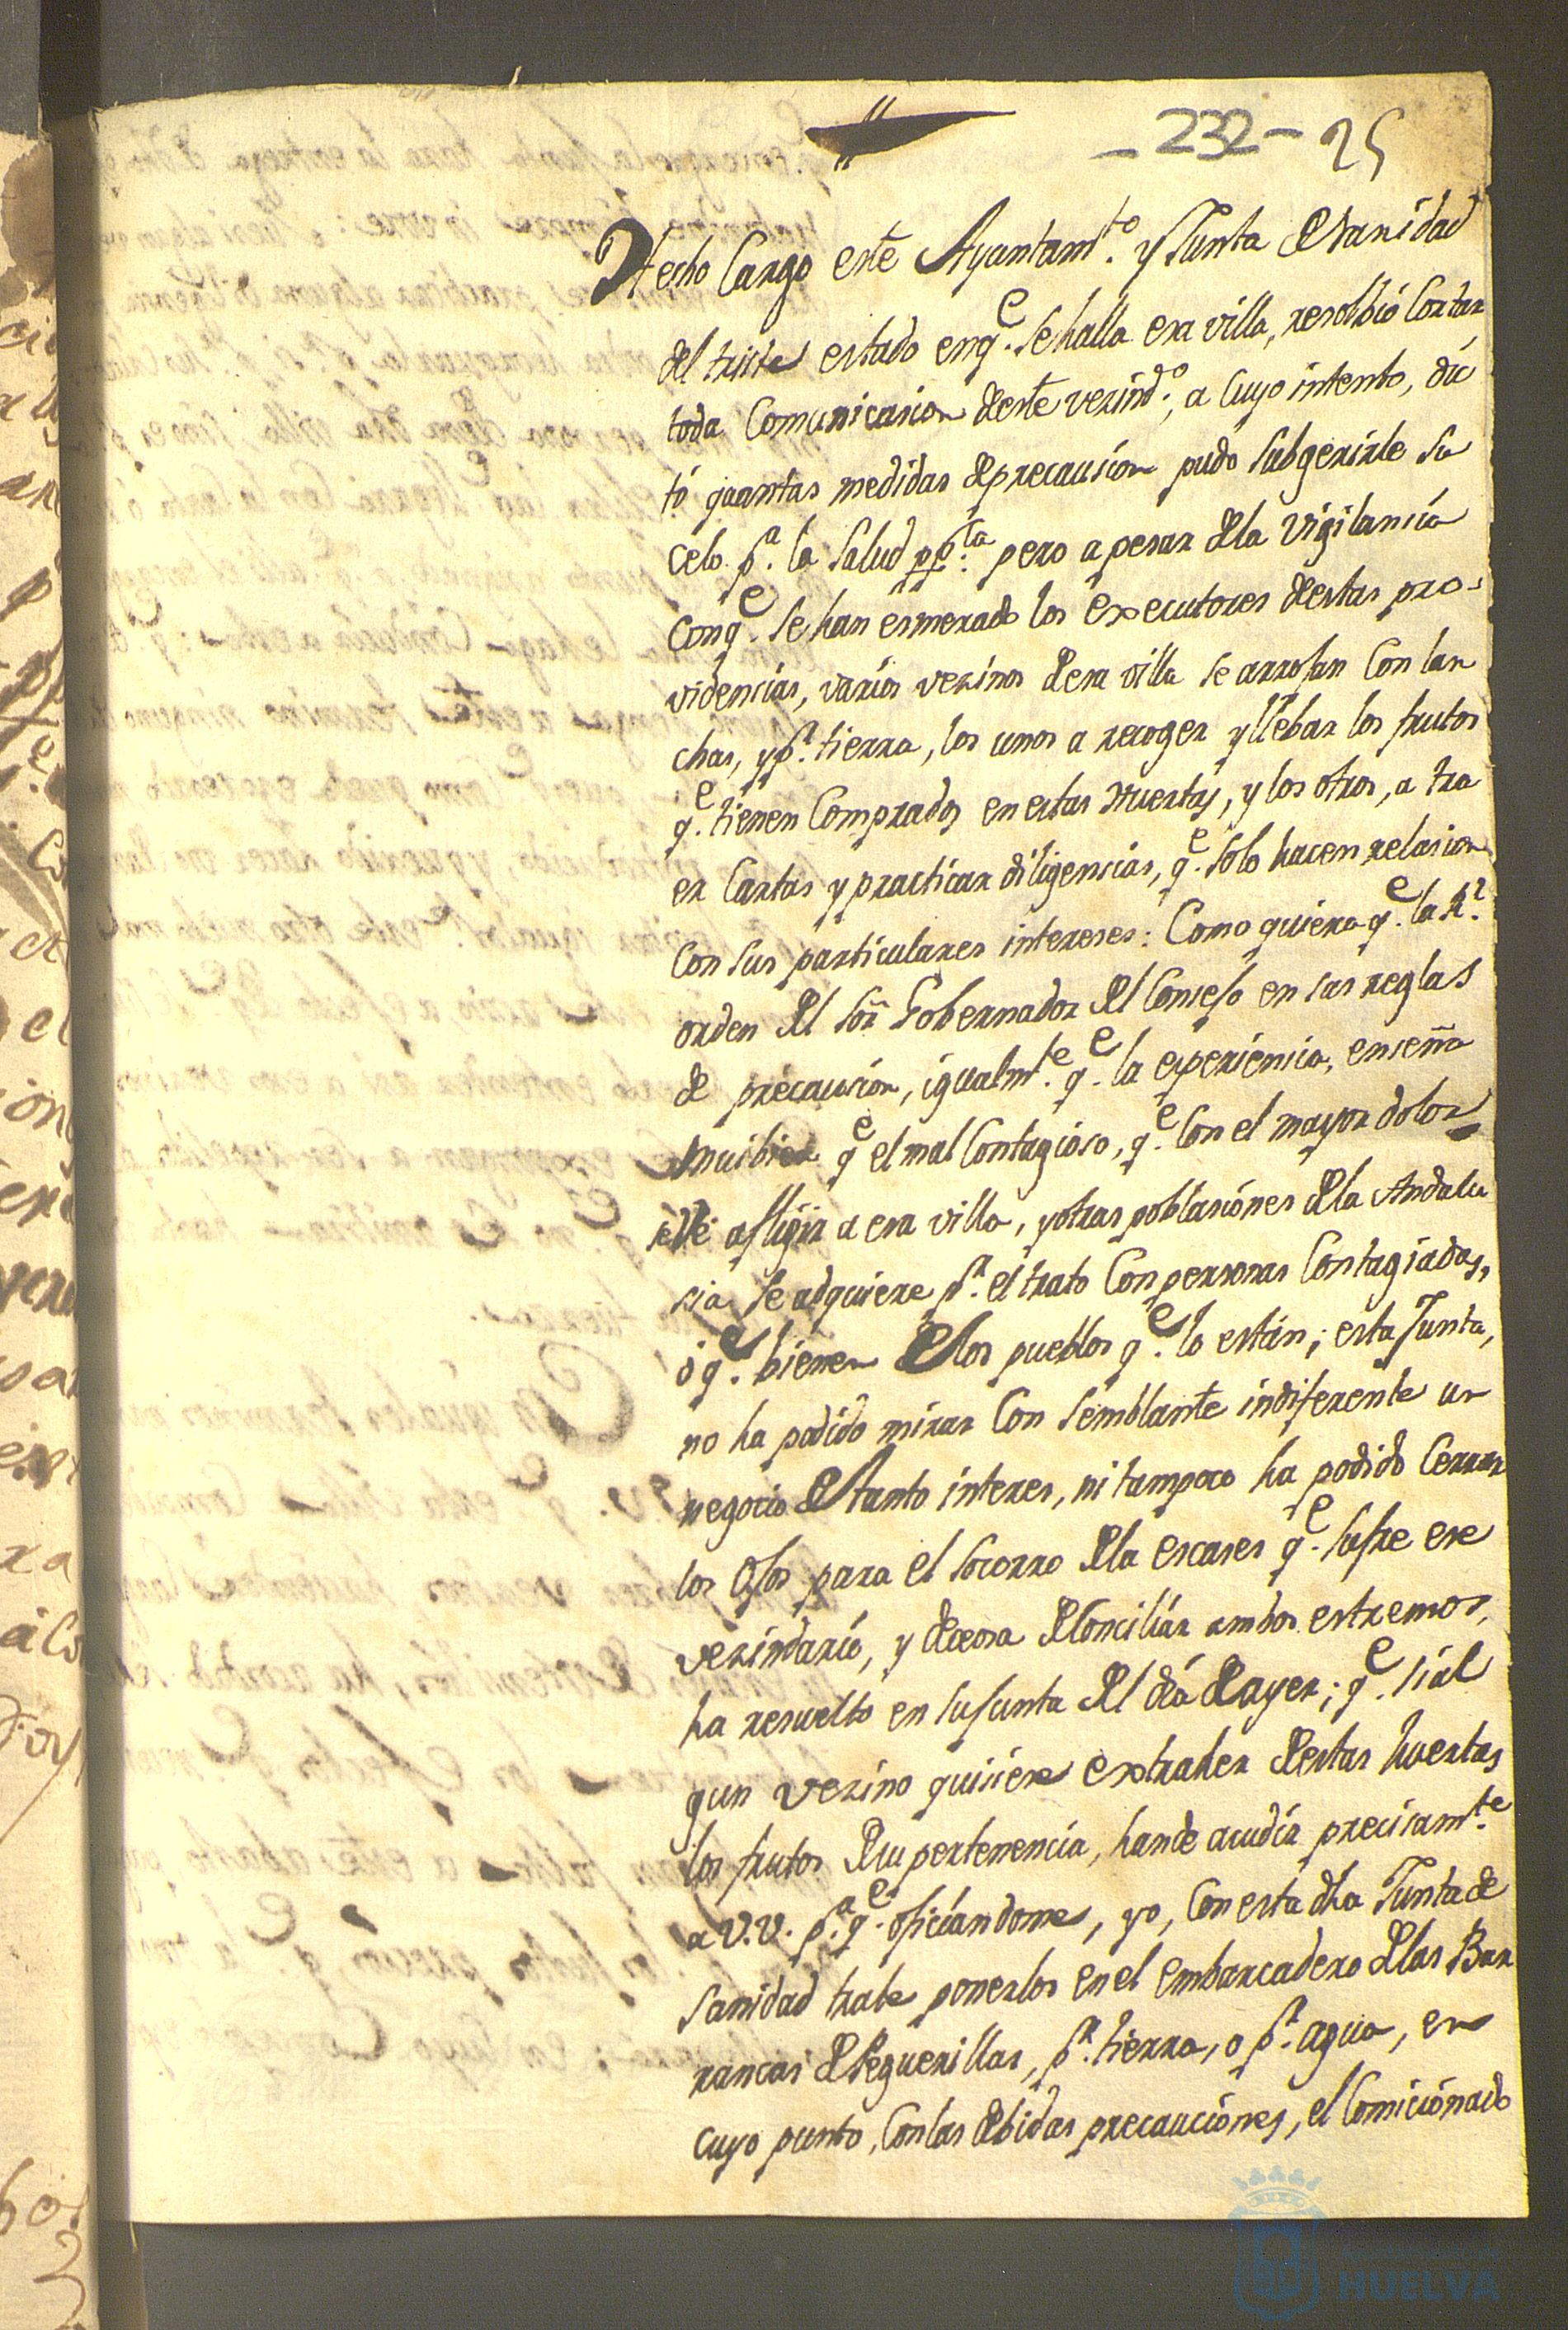 - 232 - 25
Hecho Cargo este Ayuntamto. y Junta de Sanidad
del triste estado en qe. se halla esa villa, resolbió Cortar
toda Comunicasion de este vezindo., a cuyo intento, dic
tó quantas medidas de precausion pudo subgerirle su
Celo pa. la Salud ppca. pero a pesar de la vigilancia
con qe. se han esmerado los executores de estas pro-
videncias, varios vezinos de esa villa se arrojan Con lan
chas, y pr. tierra, los unos a recoger y llebar los frutos
qe. tienen Comprados en estas Huertas, y los otros, a tra
er Cartas y practicar diligencias, qe. solo hacen relasion
con sus particulares intereses: Como quiera qe. la Rl.
orden del Sor. Gobernador del Consejo en sus reglas
de precausion, igualmte. qe. la esperiensia, enseña
mui bien qe el mal Contagioso, qe. Con el mayor dolor
se vé afligir a esa villa, y otras poblasiones de la Andalu
sia se adquiere pr. el trato Con personas Contagiadas,
ó qe. bienen de los pueblos qe. lo están; esta Junta,
no ha podido mirar Con semblante indiferente un
negocio de tanto interes, ni tampoco ha podido Cerrar
los Ojos para el socorro de la escases qe. sufre ese
vezindario, y deseosa de Conciliár ambos estremos,
ha resuelto en su Junta del día de ayer; qe. si al
gun vezino quisiere extraher de estas huertas
los frutos de su pertenencia, han de acudir precisamte.
a V.V. pa. qe. oficiandome, yo, con esta dha Junta de
Sanidad trate ponerlos en el embarcadero de las Bar
rancas de Peguerillas, pr. tierra, o pr. agua, en
cuyo punto, Con las debidas precauciones, el Comicionado
HUELVA